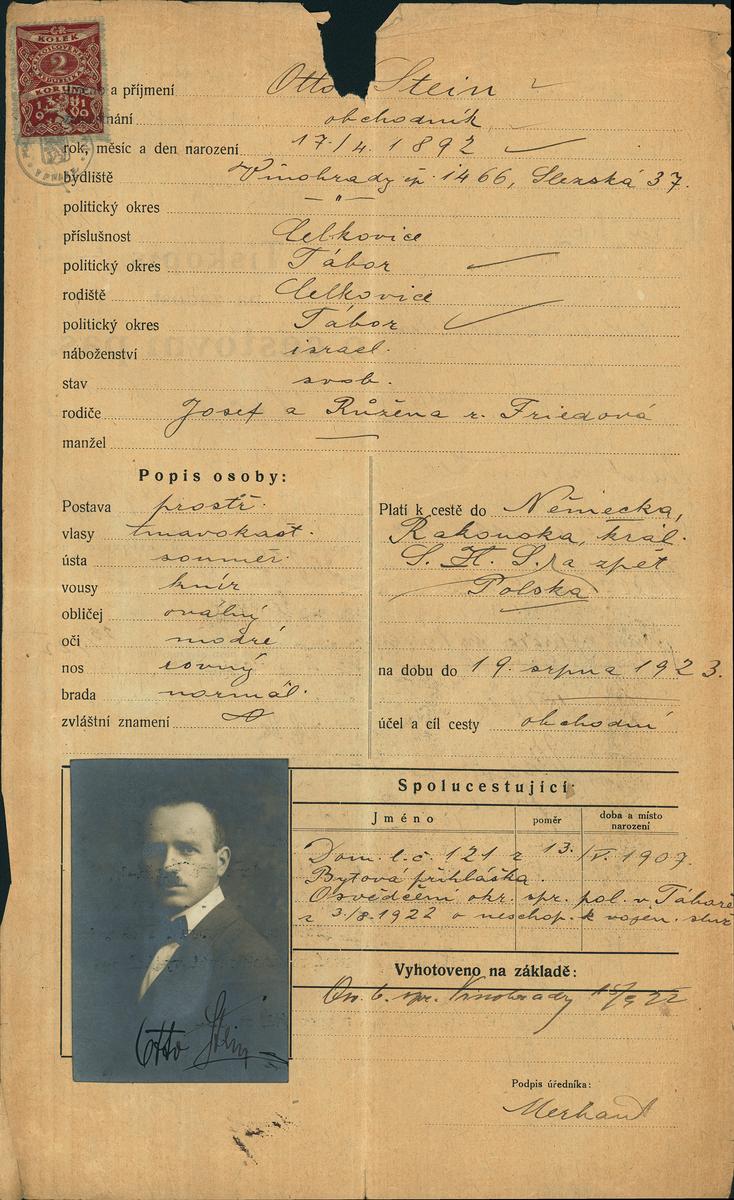 ČR
KOLEK
ČESKOSLOVENSKÁ REPUBLIKA
2
KORUNY
19 19
a příjmení Otto Stein
obchodník
rok, měsíc a den narození 17./4. 1892
bydliště Vinohrady čp. 1466, Slezská 37.
politický okres — " —
příslušnost Čelkovice
politický okres Tábor
rodiště Čelkovice
politický okres Tábor
náboženství israel.
stav svob.
rodiče Josef a Růžena r. Friedová
manžel —
Popis osoby:
Postava prostř.
vlasy tmavokašt.
ústa souměr.
vousy knír
obličej oválný
oči modré
nos rovný
brada normál.
zvláštní znamení
Platí k cestě do Německa,
Rakouska, král.
S. H. S. a zpět
Polska
na dobu do 19. srpna 1923.
účel a cíl cesty obchodní
Spolucestující:
Jméno poměr doba a místo narození
Dom. l. č. 121 z 13./V. 1907.
Bytová přihláška.
Osvědčení okr. spr. pol. v Táboře
z 3./8. 1922 o neschop. k vojen. služ
Vyhotoveno na základě:
Vinohrady
Otto Stein
Podpis úředníka: